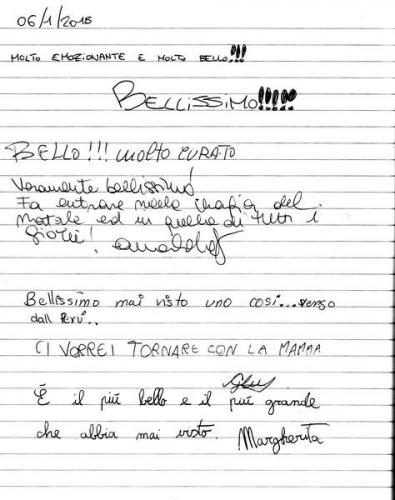 06/1/2018
MOLTO EMOZIONANTE E MOLTO BELLO!!!
BELLISSIMO!!!!!
BELLO!!! MOLTO CURATO
Veramente bellissimo!
Fa entrare nella magia del
Natale ed in quella di tutti i
giorni!
Bellissimo mai visto uno così...vengo
dall Perù..
CI VORREI TORNARE CON LA MAMMA
È il più bello e il più grande
che abbia mai visto. Margherita